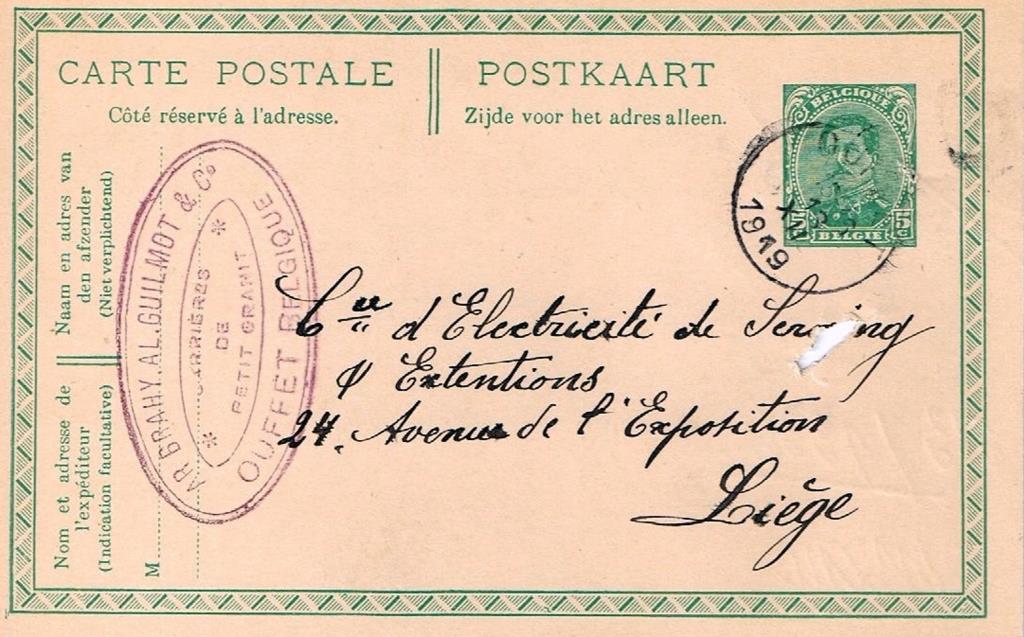 CARTE POSTALE
Côté réservé à l'adresse.
POSTKAART
Zijde voor het adres alleen.
BELGIQUE
5 C
5 C
BELGIË
1919
Naam en adres van
den afzender
(Niet verplichtend)
Nom et adresse de
l'expéditeur
(Indication facultative)
M
AR BRAHY. AL. GUILMOT & Co
* CARRIÈRES *
DE
PETIT GRANIT
OUFFET BELGIQUE
Cie d'Electricité de Seraing
& Extentions
24, Avenue de l'Exposition
Liège